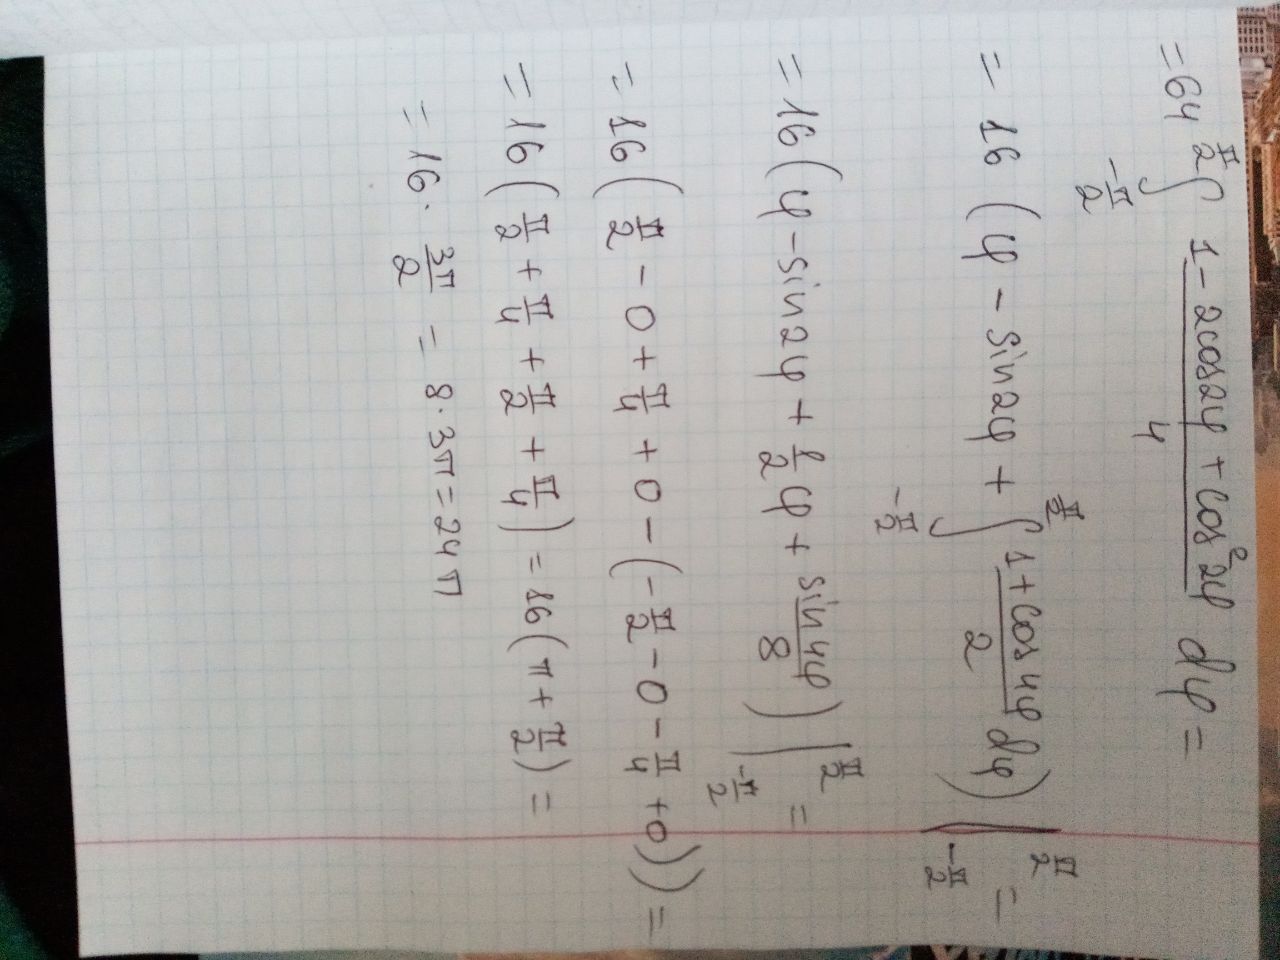 = 64 ∫_{-π/2}^{π/2} (1 - 2cos2φ + cos²2φ)/4 dφ =
= 16 (φ - sin2φ + ∫_{-π/2}^{π/2} (1 + cos4φ)/2 dφ) |_{-π/2}^{π/2} =
= 16 (φ - sin2φ + 1/2 φ + sin4φ/8) |_{-π/2}^{π/2} =
= 16 (π/2 - 0 + π/4 + 0 - (-π/2 - 0 - π/4 + 0)) =
= 16 (π/2 + π/4 + π/2 + π/4) = 16 (π + π/2) =
= 16 · 3π/2 = 8 · 3π = 24π